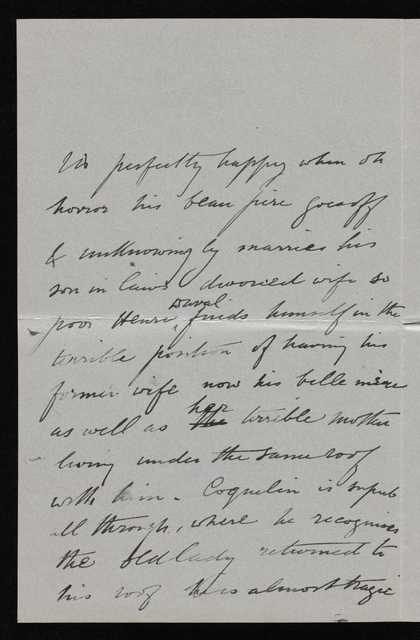 is perfectly happy when oh
horror his beau père goes off
& unknowingly marries his
son in laws divorced wife so
poor Henri Duval finds himself in the
terrible position of having his
former wife now his belle mère
as well as her terrible mother
living under the same roof
with him - Coquelin is superb
all through, where he recognises
the old lady returned to
his roof he is almost tragic